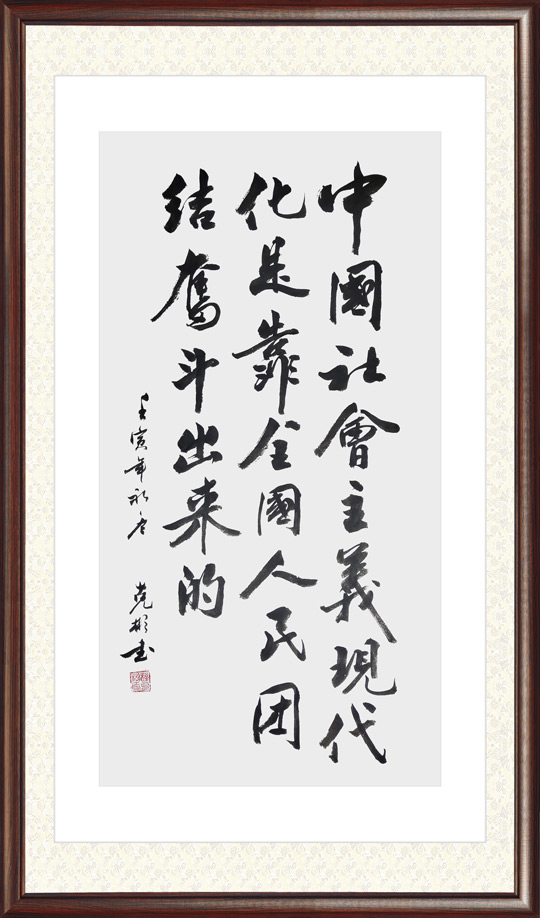 中國社會主義現代
化是靠全國人民团
结奮斗出来的
壬寅年秋月
克彬书